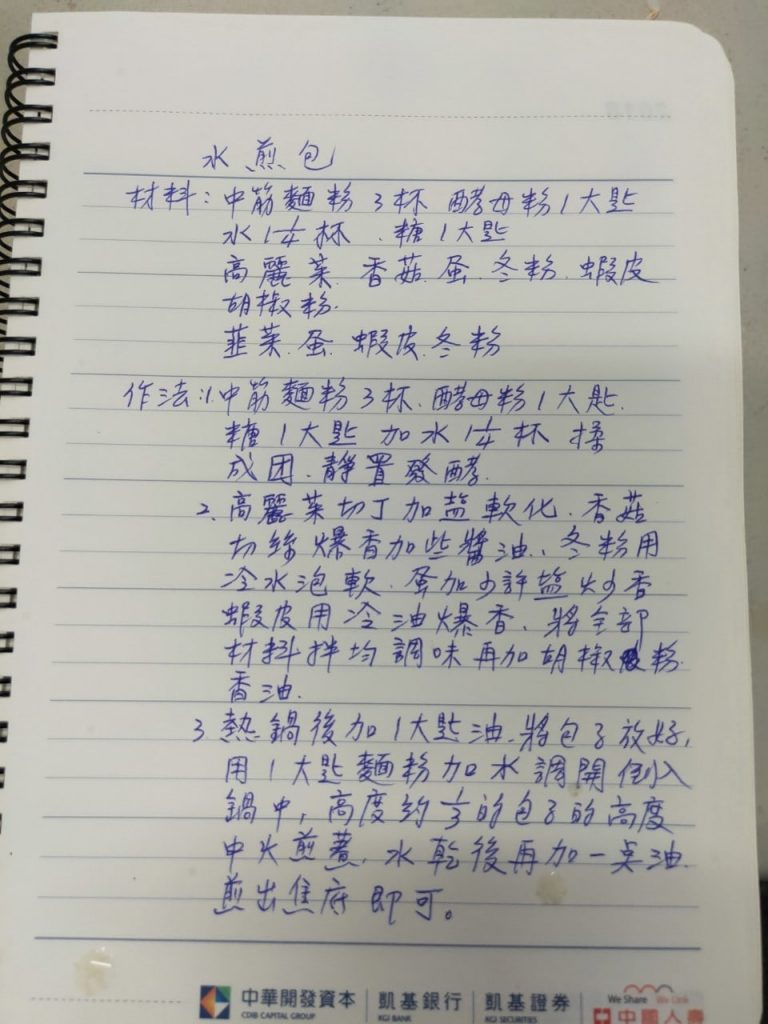 水煎包
材料:中筋麵粉3杯 酵母粉1大匙
水1¼杯、糖1大匙
高麗菜.香菇.蛋.冬粉.蝦皮
胡椒粉.
韮菜.蛋.蝦皮.冬粉
作法:1.中筋麵粉3杯.酵母粉1大匙.
糖1大匙 加水1¼杯 揉
成团.靜置發酵.
2.高麗菜切丁加盐軟化.香菇
切絲爆香加些醬油.、冬粉用
冷水泡軟.蛋加少許盐炒香
蝦皮用冷油爆香.將全部
材料拌均調味再加胡椒粉.
香油.
3.熱鍋後加1大匙油.將包子放好,
用1大匙麵粉加水調開倒入
鍋中,高度約⅓的包子的高度
中火煎煮.水乾後再加一点油.
煎出焦底即可。
中華開發資本 凱基銀行 凱基證券 We Share We Link
CDIB CAPITAL GROUP KGI BANK KGI SECURITIES 中國人壽